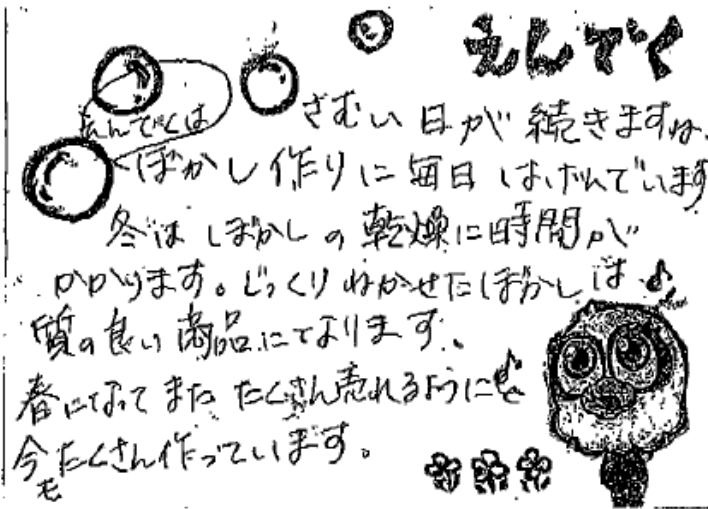 えんでく
さむい日が続きますね、
えんでくは
ぼかし作りに毎日はげんでいます
冬はぼかしの乾燥に時間が
かかります。じっくりねかせたぼかしは
質の良い商品になります。
春になってまたたくさん売れるように
今もたくさん作っています。